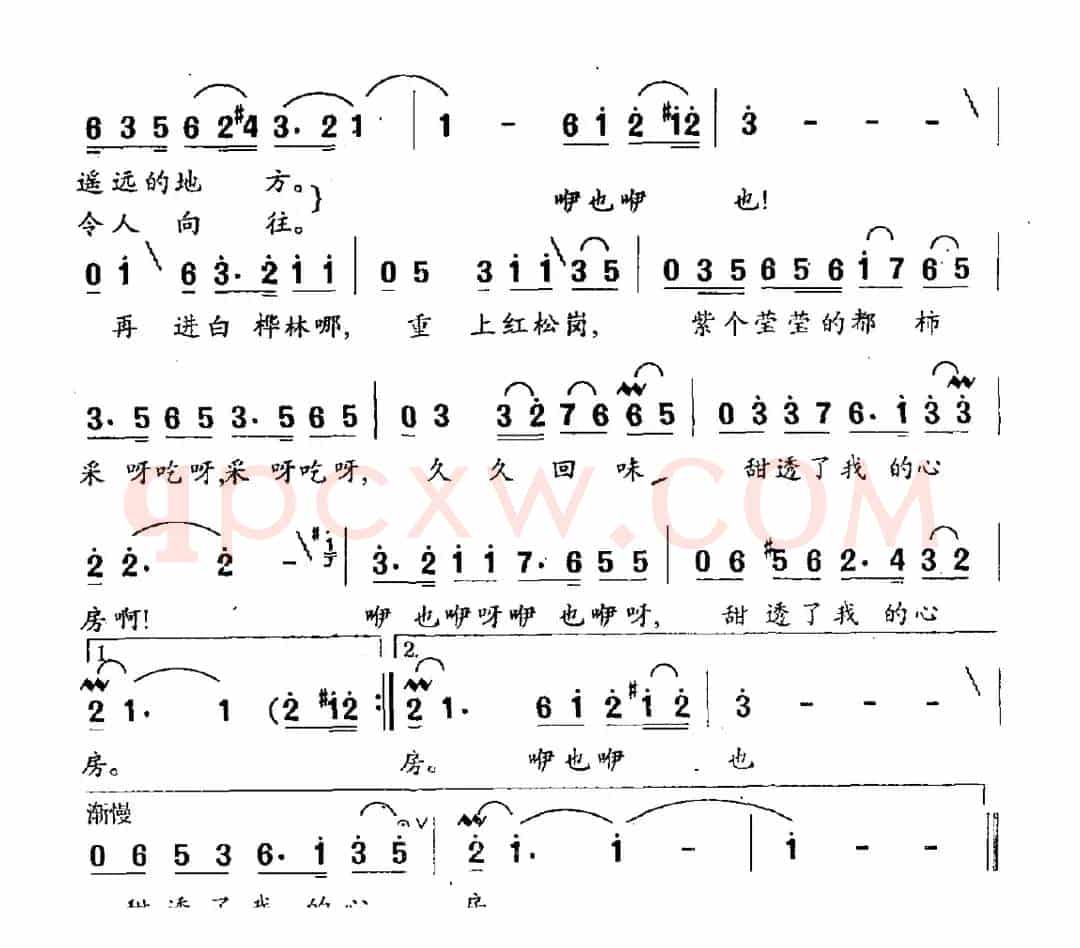 6 3 5 6 2 #4 3. 2 1 | 1 - 6 i 2 #i 2 | 3 - - - |
遥远的地 方。
令人 向 往。} 咿也咿 也!
0 i 6 3. 2 i i | 0 5 3 i i 3 5 | 0 3 5 6 5 6 i 7 6 5 |
再 进白 桦林哪, 重 上红松岗, 紫个莹莹的都 柿
3. 5 6 5 3. 5 6 5 | 0 3 3 2 7 6 6 5 | 0 3 3 7 6. i 3 3 |
采 呀吃呀,采 呀吃呀, 久 久 回 味, 甜透了我 的心
qpcxw.COM
2 2. 2 - #i | 3. 2 i i 7. 6 5 5 | 0 6 #5 6 2. 4 3 2 |
房啊! 咿 也咿呀咿 也咿呀, 甜 透了我 的心
1. 2.
2 1. 1 (2 #i 2 :| 2 1. 6 i 2 #i 2 | 3 - - - |
房。 房。 咿也咿 也
渐慢
0 6 5 3 6. i 3 5 | 2 i. i - | i - - ||
甜透了我 的心 房